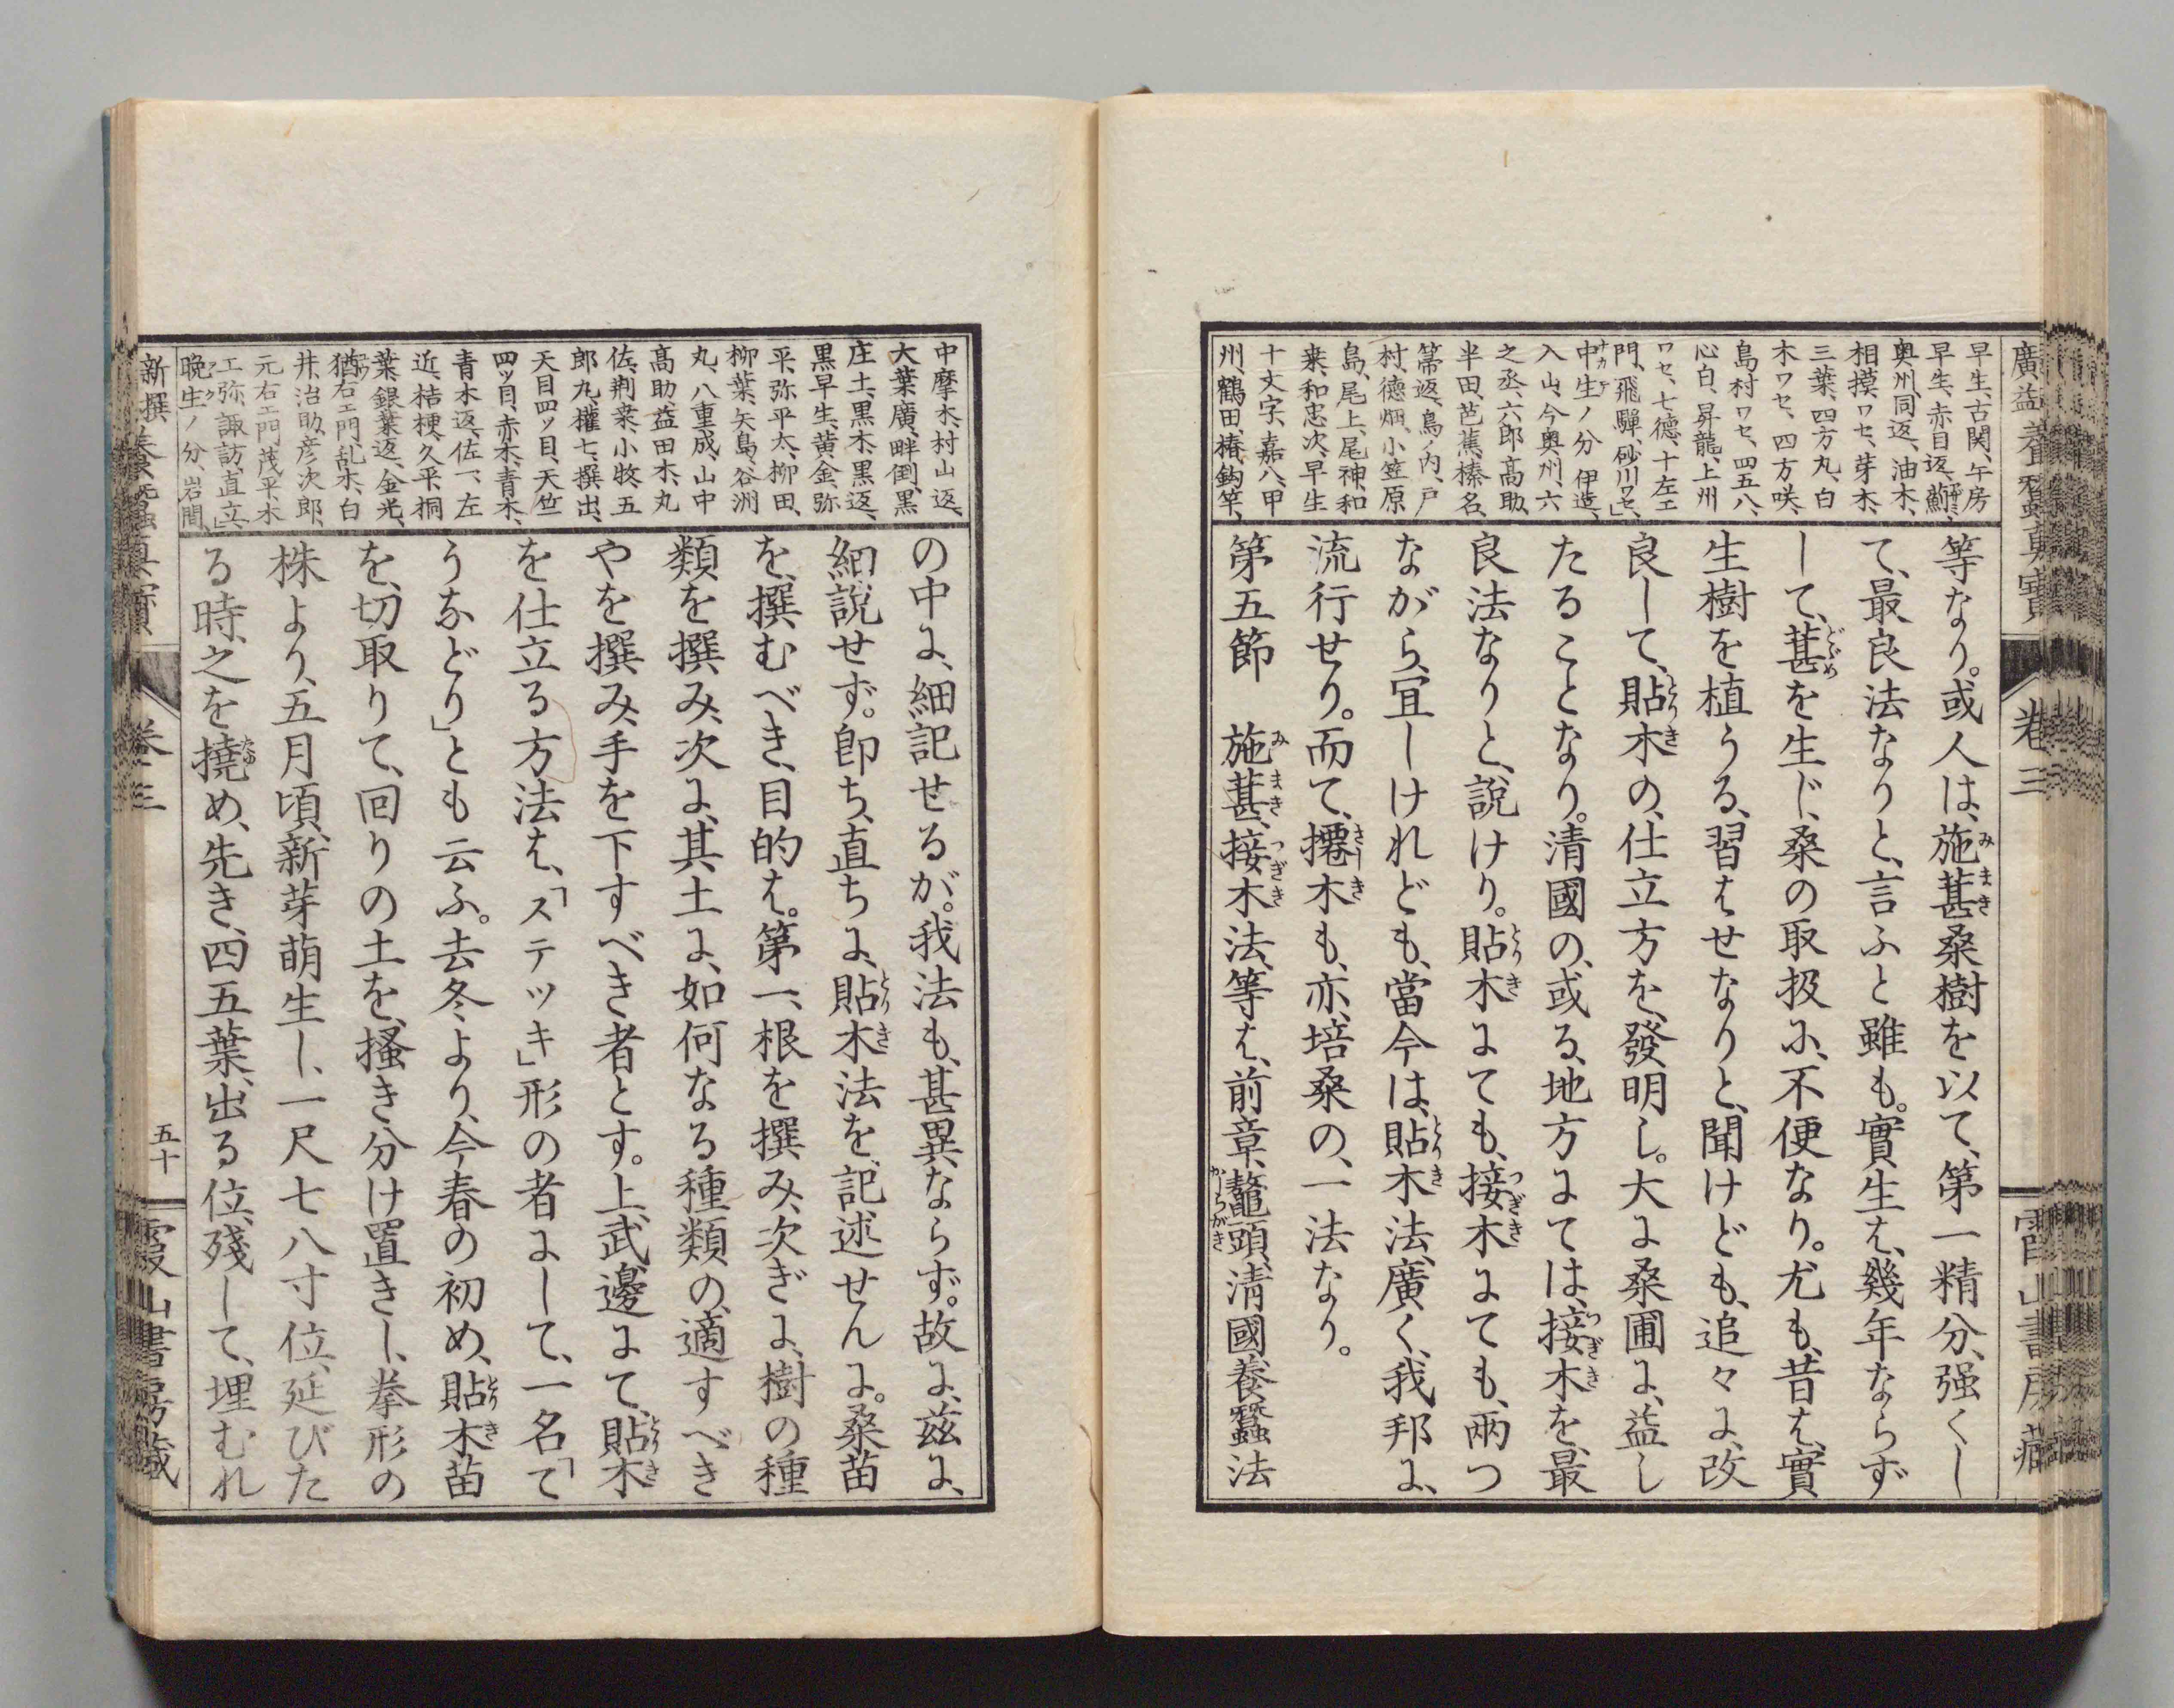 早生、古関、午房
早生、赤目返、鼠、
奥州、同返、油木、
相摸、ワセ、芽木、
三葉、四方丸、白
木ワセ、四方咲、
島村ワセ、四五八、
心白、昇龍、上州
ワセ、七德、十左エ
門、飛騨、砂川ワセ、」
中生ノ分 伊達、
入山、今奥州、六
之丞、六郎、高助、
半田、芭蕉、榛名、
箒返、鳥ノ内、戸
村、德畑、小笠原
島、尾上、尾神、和
桒、和忠次、早生
十文字、嘉八、甲
州、鶴田、椿、鈎竿、
等なり。或人は、施葚桑樹を以て、第一精分、强くし
て、最良法なりと、言ふと雖も。實生は、幾年ならず
して、葚を生じ、桑の取扱に、不便なり。尤も、昔は、實
生樹を植うる、習はせなりと、聞けども、追々に、改
良して、貼木の、仕立方を、發明し。大に桑圃に、益し
たることなり。清國の、或る、地方にては、接木を、最
良法なりと、說けり。貼木にても、接木にても、兩つ
ながら、宜しけれども、當今は、貼木法、廣く、我邦に、
流行せり。而て、攓木も、亦、培桑の、一法なり。
第五節 施葚、接木法、等は、前章、鼇頭、清國、養蠶法
廣益養蠶真寶
卷三
霞山書房藏
中摩木、村山返、
大葉、廣、畔倒、黒
庄土、黒木、黒返、
黒早生、黄金、弥
平、弥平太、柳田、
柳葉、矢島、谷洲
丸、八重成、山中
高助、益田木、丸
佐、荆桒、小牧、五
郎丸、權七、撰出、
天目四ツ目、天竺
四ツ目、赤木、青木、
青木返、佐一、左
近、桔梗、久平、桐
葉、銀葉返、金光、
猶右エ門、乱木、白
井、治助、彦次郎、
元右エ門、茂平、木
エ弥、諏訪、直立、」
晩生ノ分、岩間、
の中に、細記せるが。我法も、甚異ならず。故に、茲に、
細說せず。卽ち、直ちに、貼木法を、記述せんに。桑苗
を、撰むべき、目的は。第一、根を撰み、次ぎに、樹の種
類を撰み、次に、其土に、如何なる種類の、適すべき
やを撰み、手を下すべき者とす。上武邊にて、貼木
を仕立る方法は、「ステツキ」形の者にして、一名「て
うなどり」とも云ふ。去冬より、今春の初め、貼木苗
を、切取りて、回りの土を、搔き分け置きし、拳形の
株より、五月頃、新芽萌生し、一尺七八寸位、延びた
る時、之を撓め、先き、四五葉、出る位、殘して、埋むれ
卷三
五十
霞山書房藏